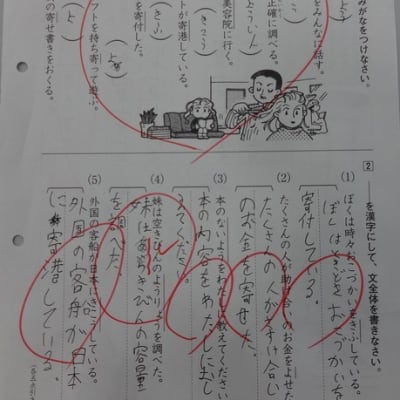 みがなをつけなさい。
をみんなに話す。
正確に調べる。
美容院に行く。
トが寄港している。
を寄付した。
フトを持ち寄って遊ぶ。
の寄せ書きをおくる。
2 ――を漢字にして、文全体を書きなさい。
(1) ぼくは時々おこづかいをきふしている。
寄付している。
(2) たくさんの人が助け合いのお金をよせた
たくさんの人がたすけ合い
のお金を寄せた。
(3) 本のないようをわたしに教えてください
本の内容をわたしにおし
えてください。
(4) 妹は空きびんのようりょうを調べた。
妹はあきびんの容量
を調べた
(5) 外国の客船が日本にきこうしている。
外国の客船が日本
に寄港している。